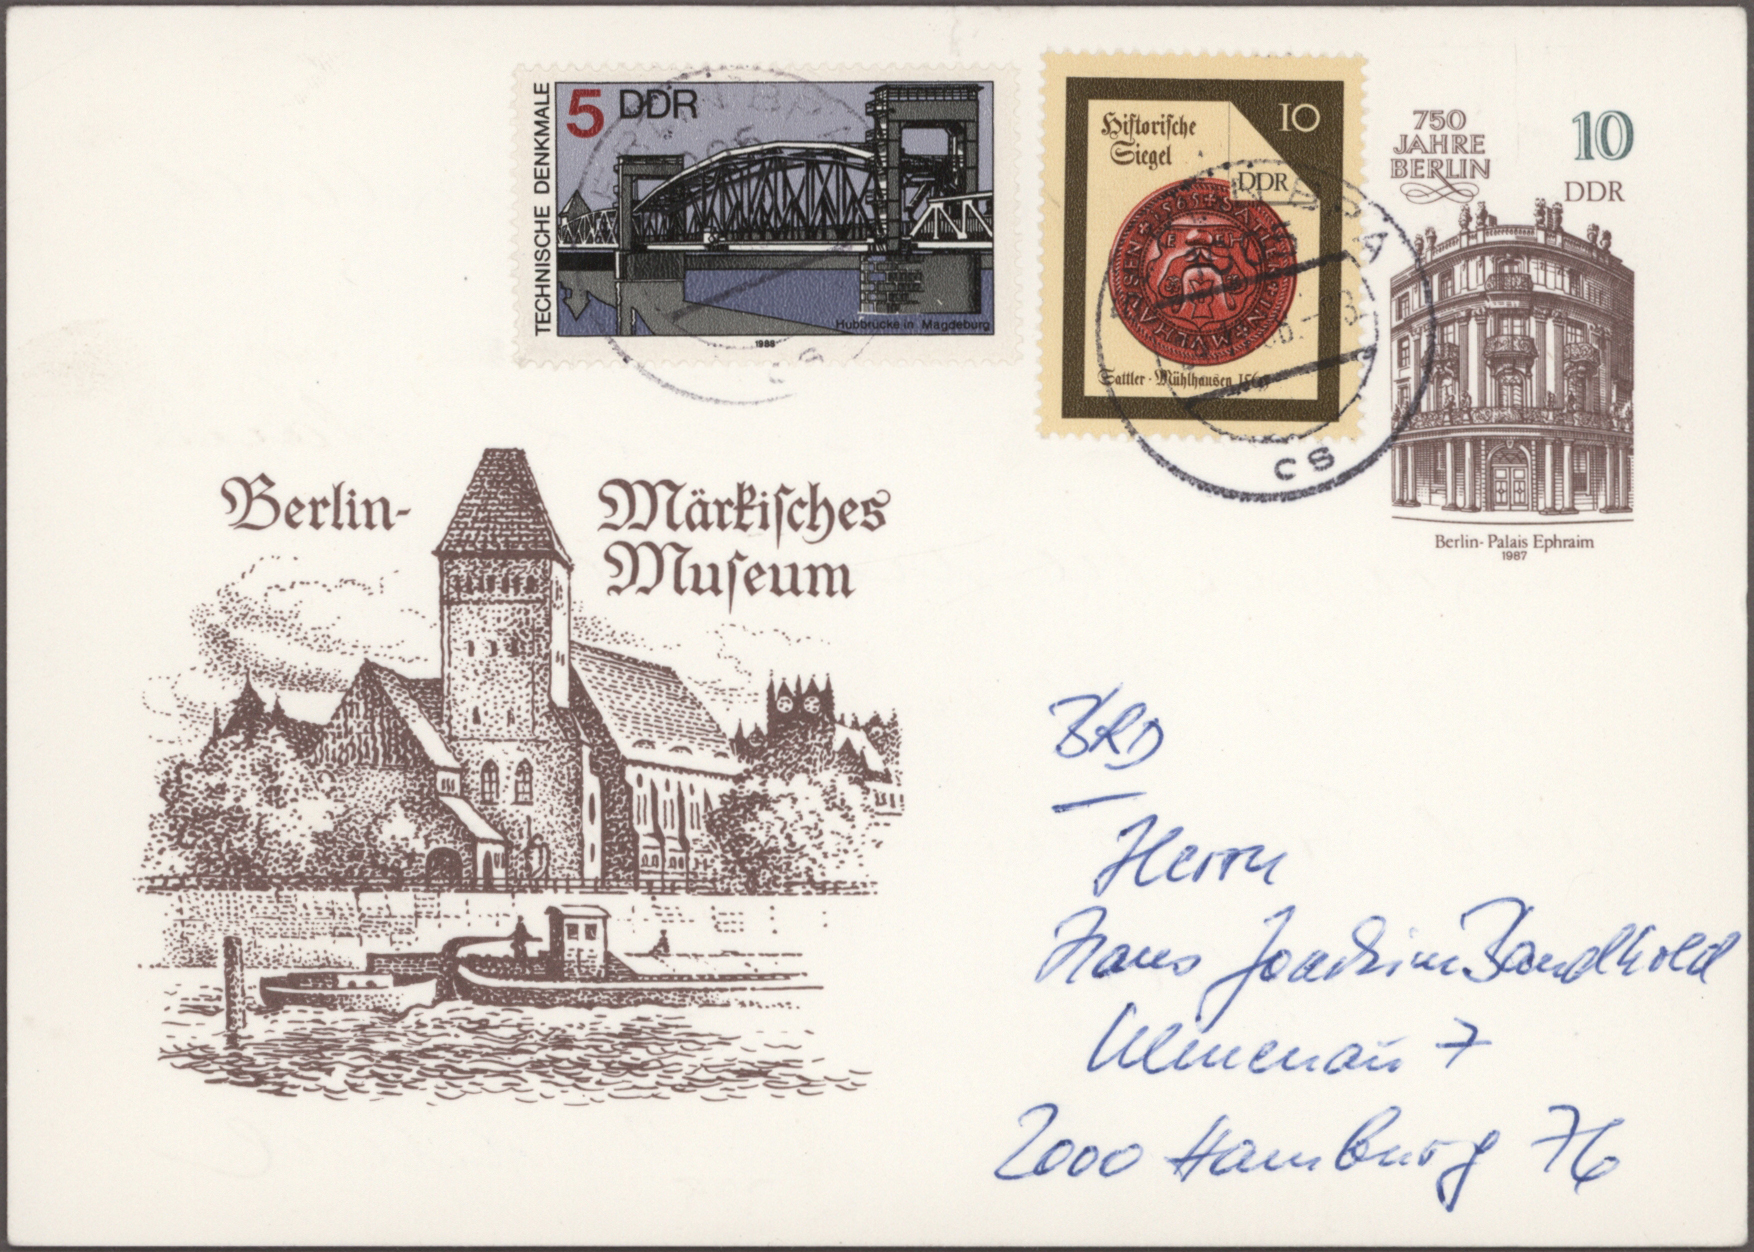 TECHNISCHE DENKMALE
5 DDR
Hubbrücke in Magdeburg
1988
Historische
Siegel
10
DDR
Sattler · Mühlhausen 1565
cs
cs
750
JAHRE
BERLIN
10
DDR
Berlin - Palais Ephraim
1987
Berlin-
Märkisches
Museum
BRD
Herrn
Hans Joachim Bandhold
Ulmenau 7
2000 Hamburg 76